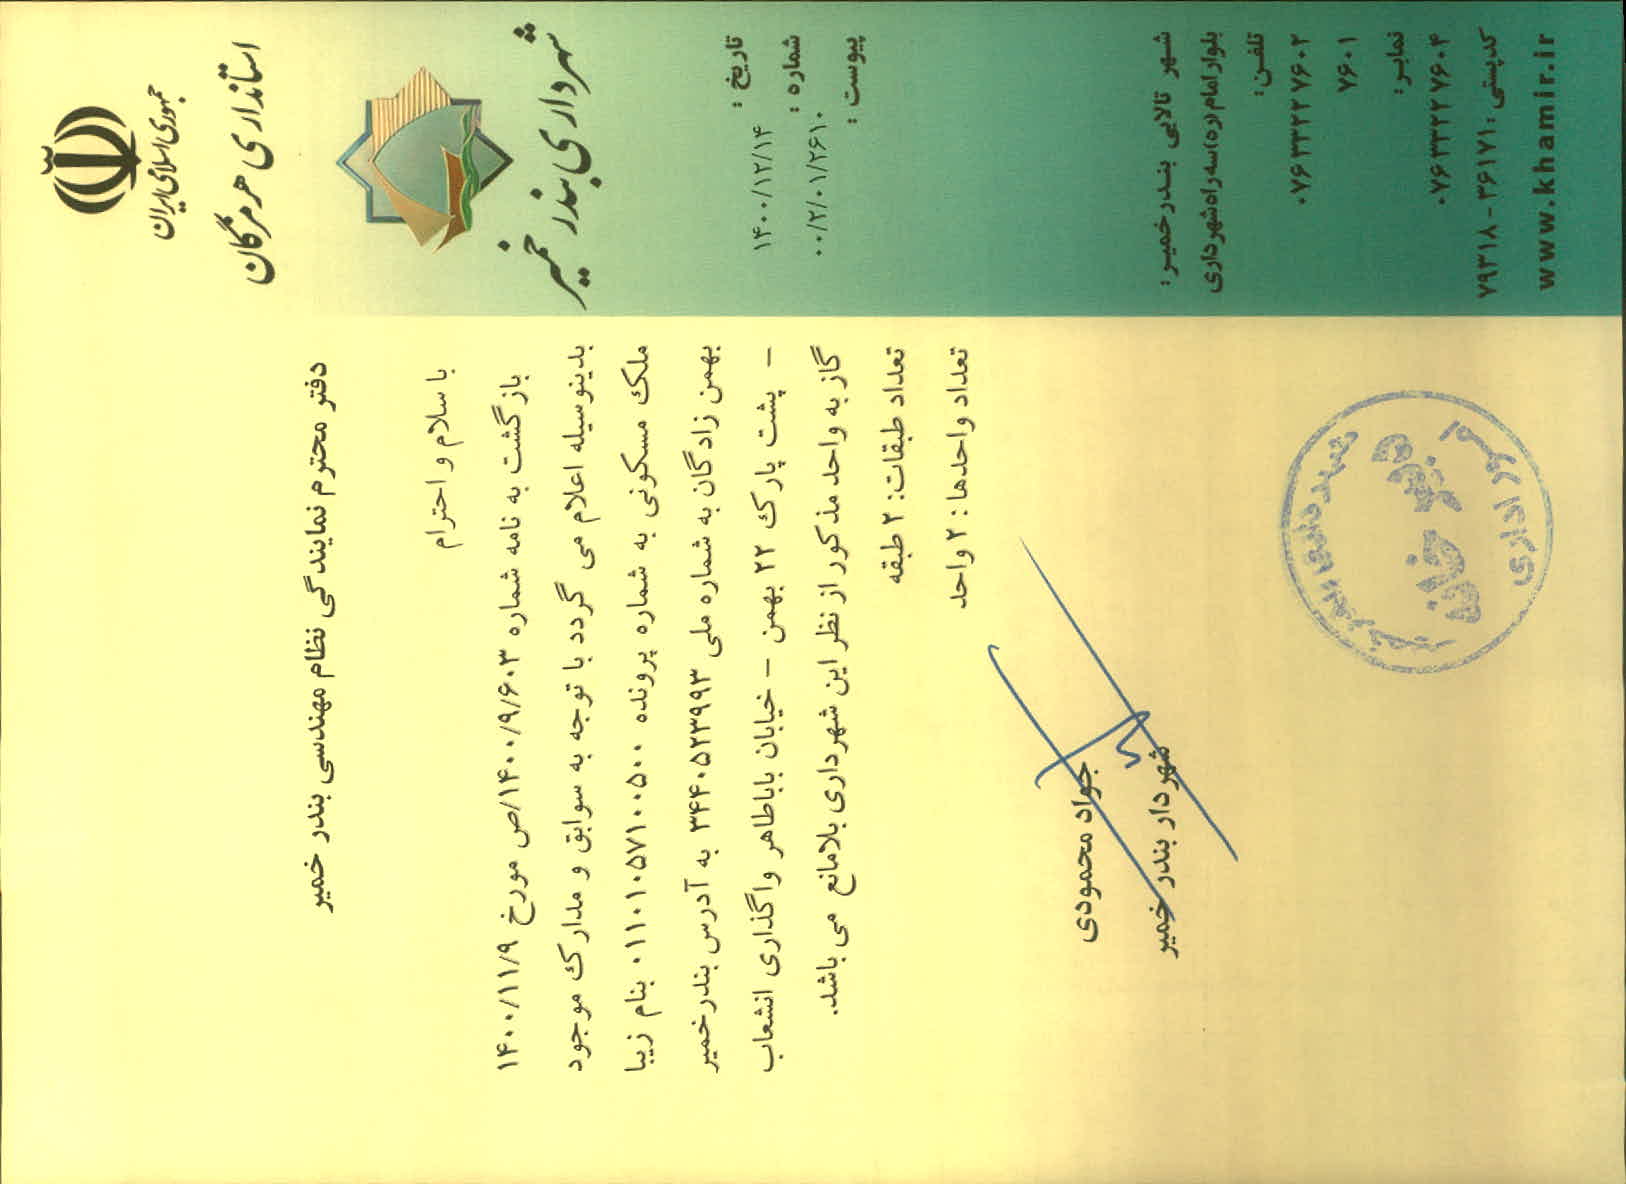 جمهوری اسلامی ایران
استانداری هرمزگان
شهرداری بندر خمیر
تاریخ : ۱۴۰۰/۱۲/۱۴
شماره : ۰۰/۲/۰۱/۲۶۱۰
پیوست :
دفتر محترم نمایندگی نظام مهندسی بندر خمیر
با سلام و احترام
بازگشت به نامه شماره ۱۴۰۰/۹/۶۰۳/ص مورخ ۱۴۰۰/۱۱/۹
بدینوسیله اعلام می گردد با توجه به سوابق و مدارک موجود
ملک مسکونی به شماره پرونده ۰۱۱۰۱۰۵۷۱۰۰۵۰۰ بنام زیبا
بهمن زادگان به شماره ملی ۳۴۴۰۵۲۳۹۹۳ به آدرس بندرخمیر
– پشت پارک ۲۲ بهمن – خیابان باباطاهر واگذاری انشعاب
گاز به واحد مذکور از نظر این شهرداری بلامانع می باشد.
تعداد طبقات: ۲ طبقه
تعداد واحدها : ۲ واحد
جواد محمودی
شهردار بندر خمیر
دبیرخانه
امور اداری
شهر تالابی بندرخمیر:
بلوار امام(ره)سه راه شهرداری
تلفن:
۰۷۶۳۳۲۲۷۶۰۲
۷۶۰۱
نمابر:
۰۷۶۳۳۲۲۷۶۰۴
کدپستی: ۳۶۱۷۱-۷۹۳۱۸
www.khamir.ir